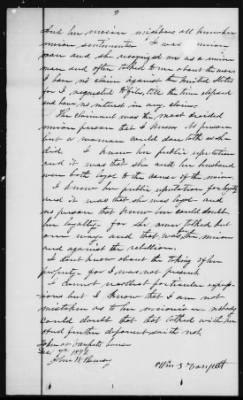 And her union neighbors all knew her
union sentiments. I was union
man and she recognized me as a union
man and often talked to me about the war
I have no claim against the United States
for I neglected to file till the time elapsed
and have no interest in any claim.
The claimant was the most decided
union person that I knew
but a woman could done both as she
did. I knew her public reputation
and it was that she and her husband
were both loyal to the cause of the union.
I knew her public reputation for loyalty
and it was that she was loyal and
no person that knew her could doubt
her loyalty for she ever talked but
one way and that was for the union
and against the rebellion.
I dont know about the taking of her
property for I was not present
I cannot recollect particular expres-
sions but I know that I am not
mistaken as to her unionism nobody
could doubt that that talked with her
and further deponent saith not.
John W.